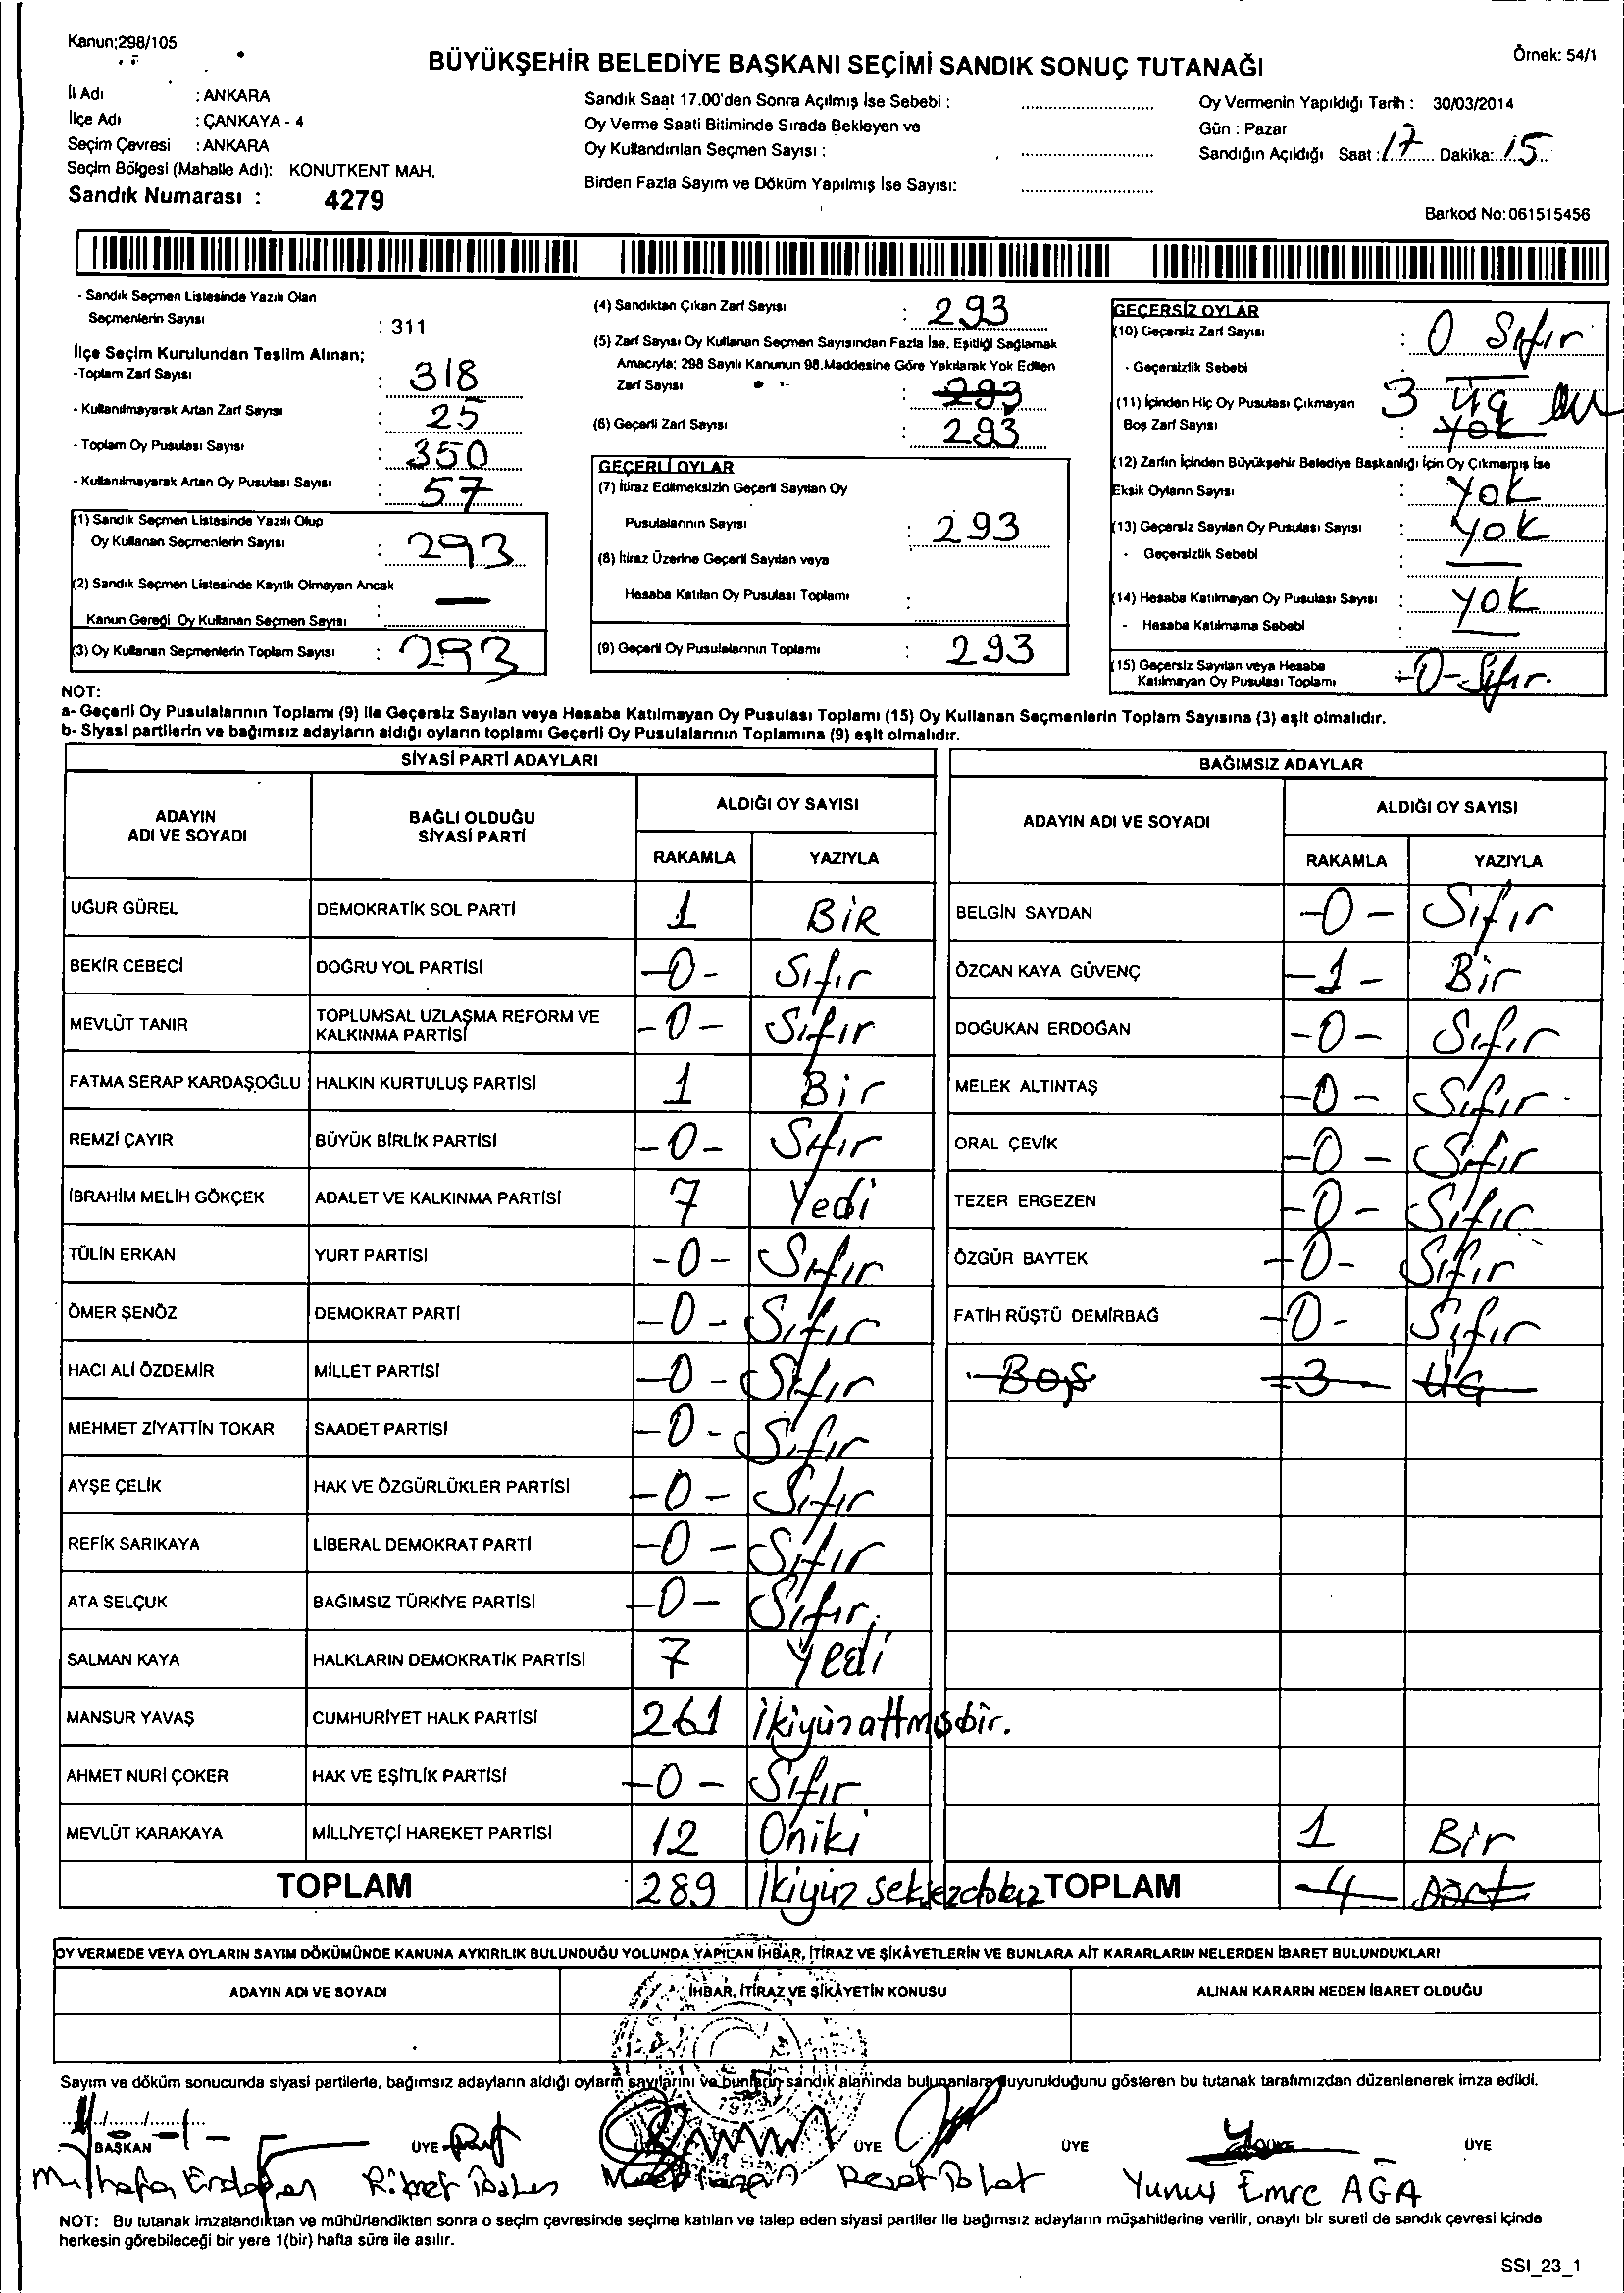 Kanun;298/105
BÜYÜKŞEHİR BELEDİYE BAŞKANI SEÇİMİ SANDIK SONUÇ TUTANAĞI
Örnek: 54/1
İl Adı : ANKARA
İlçe Adı : ÇANKAYA - 4
Seçim Çevresi : ANKARA
Seçim Bölgesi (Mahalle Adı): KONUTKENT MAH.
Sandık Numarası : 4279
Sandık Saat 17.00'den Sonra Açılmış İse Sebebi :
Oy Verme Saati Bitiminde Sırada Bekleyen ve
Oy Kullandırılan Seçmen Sayısı :
Birden Fazla Sayım ve Döküm Yapılmış İse Sayısı:
Oy Vermenin Yapıldığı Tarih : 30/03/2014
Gün : Pazar
Sandığın Açıldığı Saat : 17 Dakika: 15
Barkod No: 061515456
- Sandık Seçmen Listesinde Yazılı Olan
Seçmenlerin Sayısı : 311
İlçe Seçim Kurulundan Teslim Alınan;
-Toplam Zarf Sayısı : 318
- Kullanılmayarak Artan Zarf Sayısı : 25
- Toplam Oy Pusulası Sayısı : 350
- Kullanılmayarak Artan Oy Pusulası Sayısı : 57
(1) Sandık Seçmen Listesinde Yazılı Olup
Oy Kullanan Seçmenlerin Sayısı : 293
(2) Sandık Seçmen Listesinde Kayıtlı Olmayan Ancak
Kanun Gereği Oy Kullanan Seçmen Sayısı : —
(3) Oy Kullanan Seçmenlerin Toplam Sayısı : 293
(4) Sandıktan Çıkan Zarf Sayısı : 293
(5) Zarf Sayısı Oy Kullanan Seçmen Sayısından Fazla İse, Eşitliği Sağlamak
Amacıyla; 298 Sayılı Kanunun 98.Maddesine Göre Yakılarak Yok Edilen
Zarf Sayısı : 293
(6) Geçerli Zarf Sayısı : 293
GEÇERLİ OYLAR
(7) İtiraz Edilmeksizin Geçerli Sayılan Oy
Pusulalarının Sayısı : 293
(8) İtiraz Üzerine Geçerli Sayılan veya
Hesaba Katılan Oy Pusulası Toplamı :
(9) Geçerli Oy Pusulalarının Toplamı : 293
GEÇERSİZ OYLAR
(10) Geçersiz Zarf Sayısı : 0 Sıfır
- Geçersizlik Sebebi
(11) İçinden Hiç Oy Pusulası Çıkmayan 3 üç
Boş Zarf Sayısı : yok
(12) Zarfın İçinden Büyükşehir Belediye Başkanlığı İçin Oy Çıkmamış İse
Eksik Oyların Sayısı : yok
(13) Geçersiz Sayılan Oy Pusulası Sayısı : yok
- Geçersizlik Sebebi —
(14) Hesaba Katılmayan Oy Pusulası Sayısı : yok
- Hesaba Katılmama Sebebi —
(15) Geçersiz Sayılan veya Hesaba
Katılmayan Oy Pusulası Toplamı -0- Sıfır.
NOT:
a- Geçerli Oy Pusulalarının Toplamı (9) ile Geçersiz Sayılan veya Hesaba Katılmayan Oy Pusulası Toplamı (15) Oy Kullanan Seçmenlerin Toplam Sayısına (3) eşit olmalıdır.
b- Siyasi partilerin ve bağımsız adayların aldığı oyların toplamı Geçerli Oy Pusulalarının Toplamına (9) eşit olmalıdır.
SİYASİ PARTİ ADAYLARI
ADAYIN ADI VE SOYADI BAĞLI OLDUĞU SİYASİ PARTİ ALDIĞI OY SAYISI
RAKAMLA YAZIYLA
UĞUR GÜREL DEMOKRATİK SOL PARTİ 1 BİR
BEKİR CEBECİ DOĞRU YOL PARTİSİ -0- Sıfır
MEVLÜT TANIR TOPLUMSAL UZLAŞMA REFORM VE KALKINMA PARTİSİ -0- Sıfır
FATMA SERAP KARDAŞOĞLU HALKIN KURTULUŞ PARTİSİ 1 Bir
REMZİ ÇAYIR BÜYÜK BİRLİK PARTİSİ -0- Sıfır
İBRAHİM MELİH GÖKÇEK ADALET VE KALKINMA PARTİSİ 7 Yedi
TÜLİN ERKAN YURT PARTİSİ -0- Sıfır
ÖMER ŞENÖZ DEMOKRAT PARTİ -0- Sıfır
HACI ALİ ÖZDEMİR MİLLET PARTİSİ -0- Sıfır
MEHMET ZİYATTİN TOKAR SAADET PARTİSİ -0- Sıfır
AYŞE ÇELİK HAK VE ÖZGÜRLÜKLER PARTİSİ -0- Sıfır
REFİK SARIKAYA LİBERAL DEMOKRAT PARTİ -0- Sıfır
ATA SELÇUK BAĞIMSIZ TÜRKİYE PARTİSİ -0- Sıfır.
SALMAN KAYA HALKLARIN DEMOKRATİK PARTİSİ 7 Yedi
MANSUR YAVAŞ CUMHURİYET HALK PARTİSİ 261 İkiyüzaltmışbir.
AHMET NURİ ÇOKER HAK VE EŞİTLİK PARTİSİ -0- Sıfır
MEVLÜT KARAKAYA MİLLİYETÇİ HAREKET PARTİSİ 12 Oniki
TOPLAM 289
BAĞIMSIZ ADAYLAR
ADAYIN ADI VE SOYADI ALDIĞI OY SAYISI
RAKAMLA YAZIYLA
BELGİN SAYDAN -0- Sıfır
ÖZCAN KAYA GÜVENÇ -1- Bir
DOĞUKAN ERDOĞAN -0- Sıfır
MELEK ALTINTAŞ -0- Sıfır
ORAL ÇEVİK -0- Sıfır
TEZER ERGEZEN -0- Sıfır
ÖZGÜR BAYTEK -0- Sıfır
FATİH RÜŞTÜ DEMİRBAĞ -0- Sıfır
Boş 3 üç
1 Bir
TOPLAM 4 Dört
OY VERMEDE VEYA OYLARIN SAYIM DÖKÜMÜNDE KANUNA AYKIRILIK BULUNDUĞU YOLUNDA YAPILAN İHBAR, İTİRAZ VE ŞİKÂYETLERİN VE BUNLARA AİT KARARLARIN NELERDEN İBARET BULUNDUKLARI
ADAYIN ADI VE SOYADI İHBAR, İTİRAZ VE ŞİKÂYETİN KONUSU ALINAN KARARIN NEDEN İBARET OLDUĞU
Sayım ve döküm sonucunda siyasi partilerle, bağımsız adayların aldığı oyların sayılarını ve bunların sandık alanında bulunanlara duyurulduğunu gösteren bu tutanak tarafımızdan düzenlenerek imza edildi.
BAŞKAN ÜYE ÜYE ÜYE ÜYE
Mustafa Erdoğan Reşat Polat Yunus Emre AĞA
NOT: Bu tutanak imzalandıktan ve mühürlendikten sonra o seçim çevresinde seçime katılan ve talep eden siyasi partiler ile bağımsız adayların müşahitlerine verilir, onaylı bir sureti de sandık çevresi içinde
herkesin görebileceği bir yere 1(bir) hafta süre ile asılır.
SSI_23_1